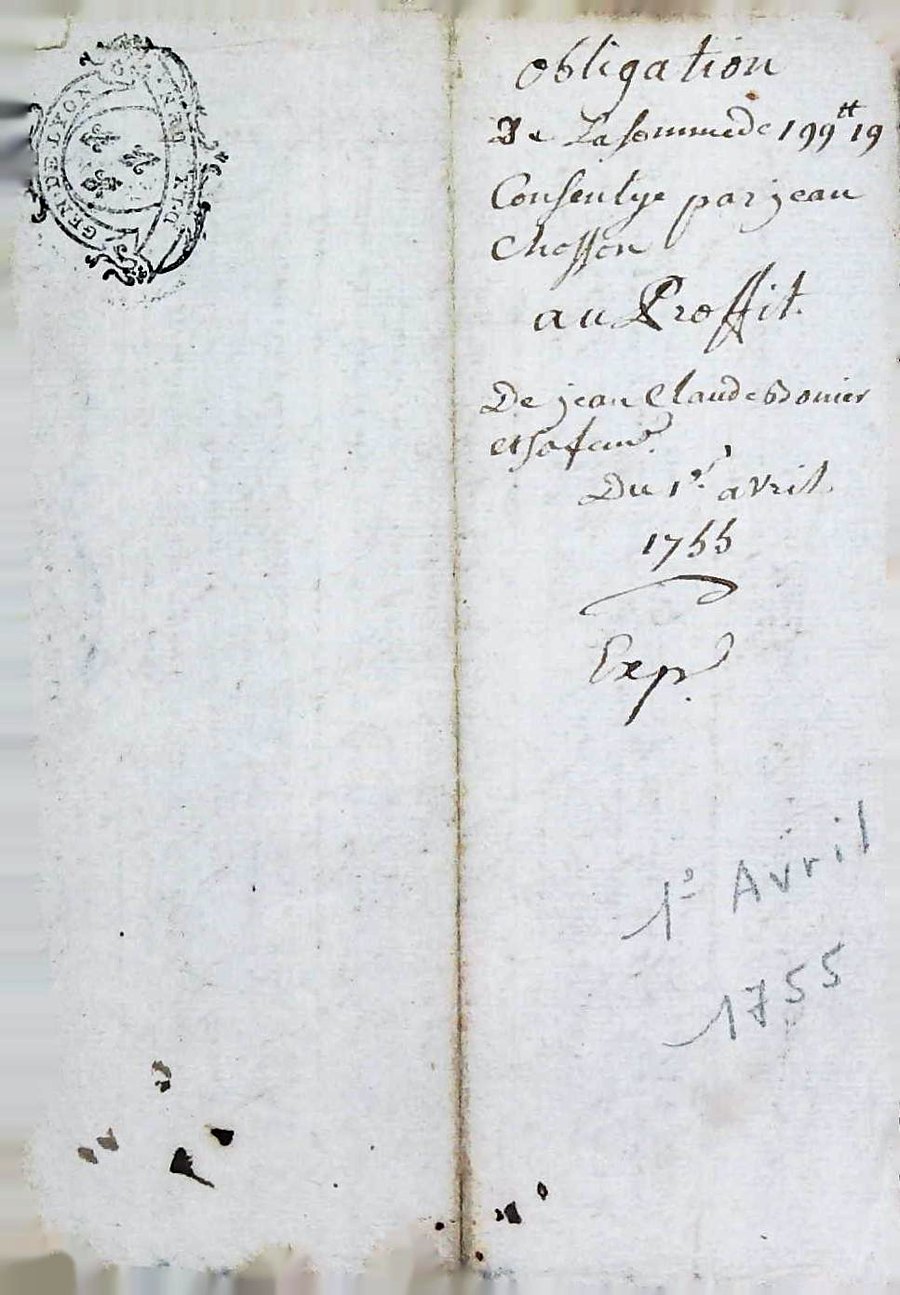 GEN DE LYON
obligation
De La sommede 199tt 19
Consentye par jean
Chosson
au Proffit
De jean Claude Donier
et sa feme
Du 1er avril
1755
Exp
1e Avril
1755